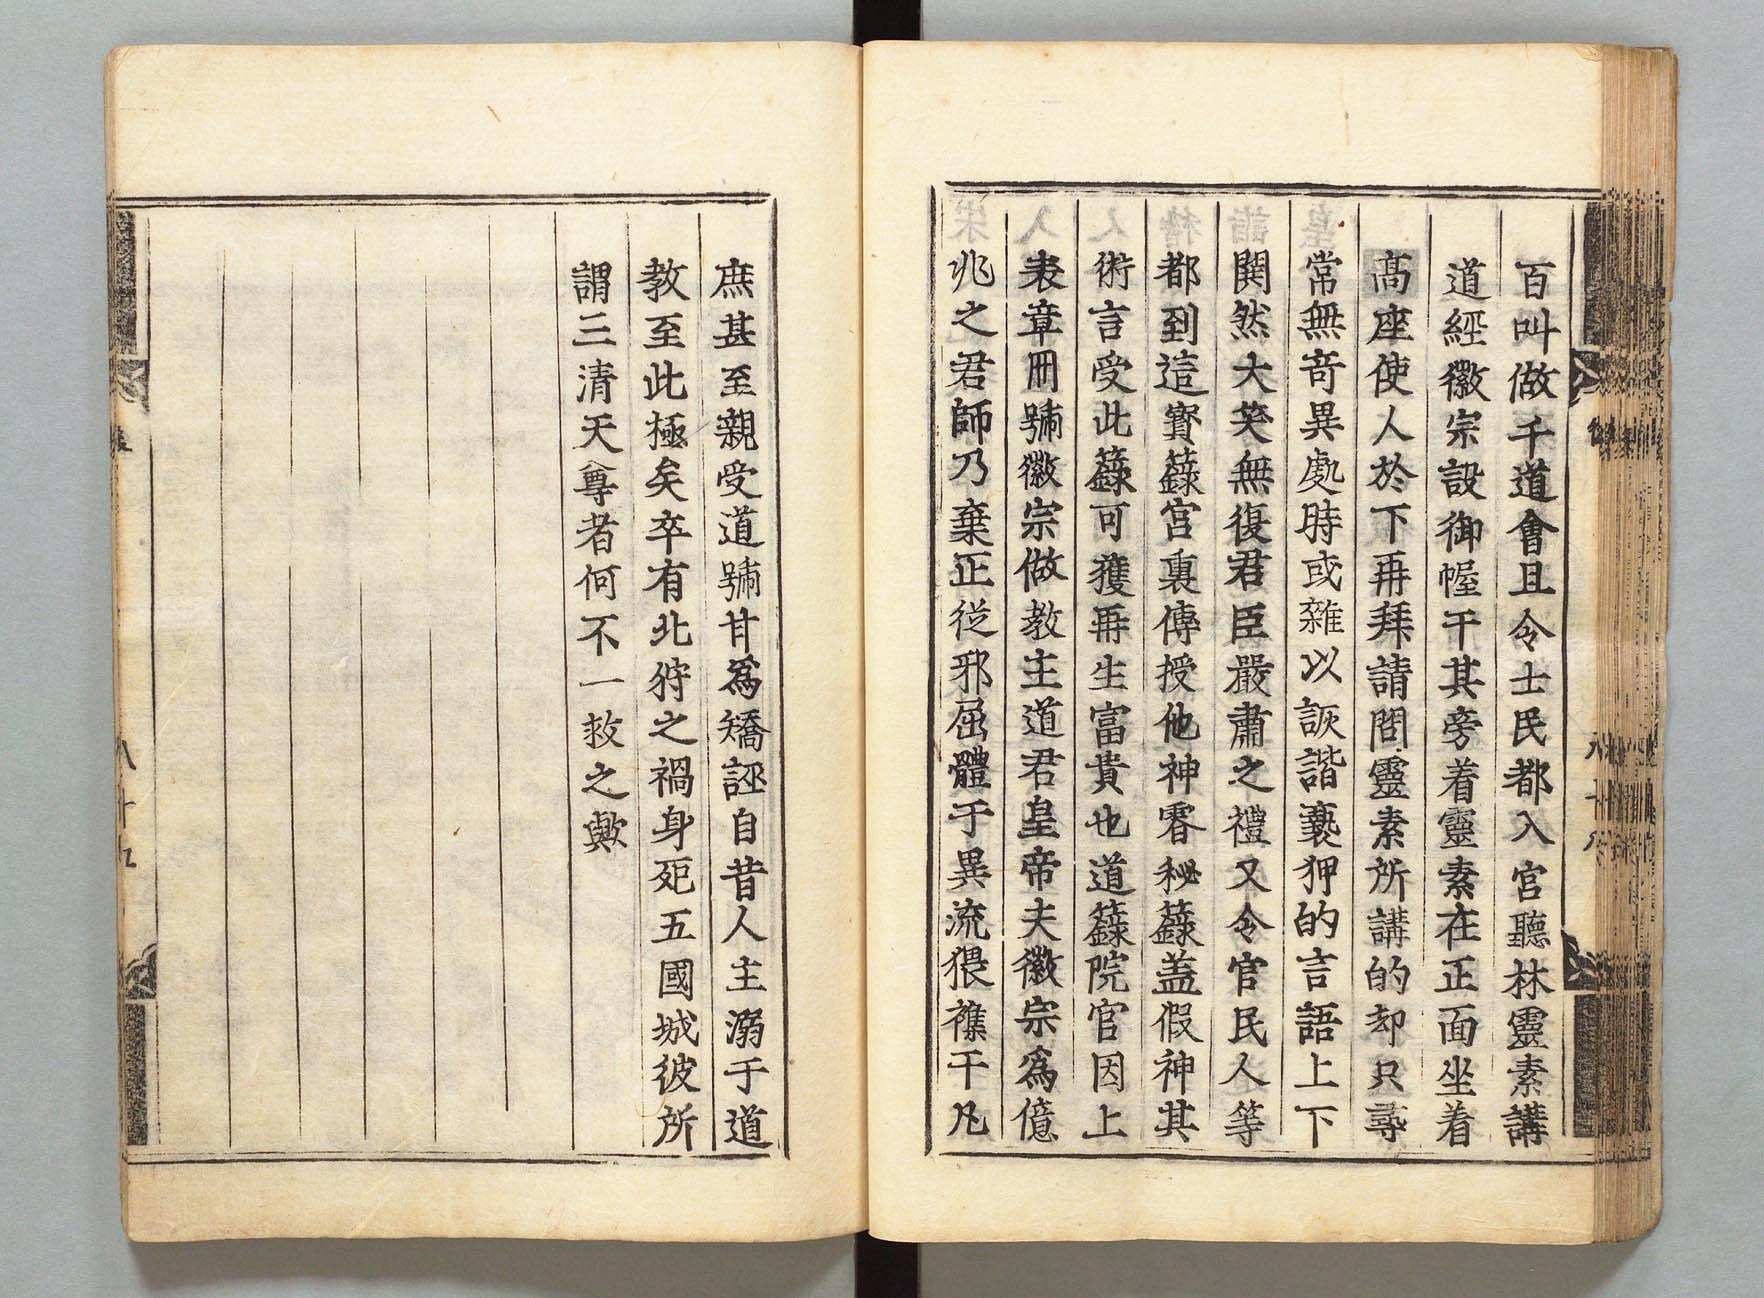 百叫做千道會且令士民都入宮聽林靈素講
道經徽宗設御幄于其旁着靈素在正面坐着
高座使人於下再拜請問靈素所講的却只尋
常無竒異處時或雜以詼諧褻狎的言語上下
閧然大笑無復君臣嚴肅之禮又令官民人等
都到這寳籙宮裏傳授他神霄秘籙盖假神其
術言受此籙可獲再生富貴也道籙院官因上
表章冊號徽宗做教主道君皇帝夫徽宗為億
兆之君師乃棄正從邪屈體于異流猥襍于凡
庶甚至親受道號甘爲矯誣自昔人主溺于道
教至此極矣卒有北狩之禍身死五國城彼所
謂三清天尊者何不一救之歟